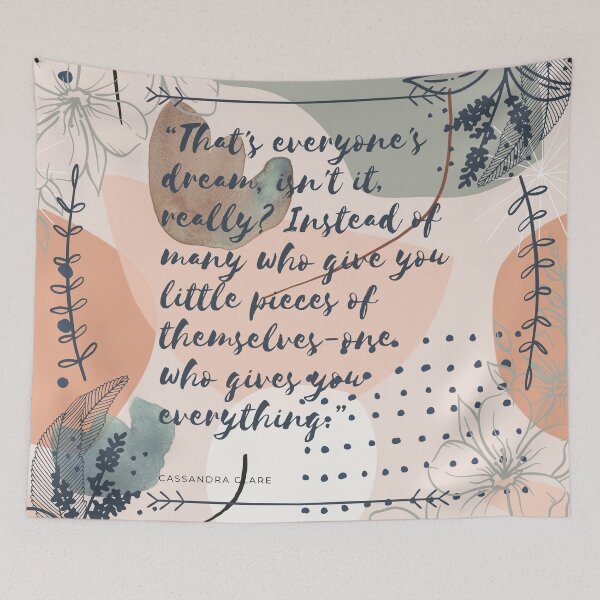 “That's everyone's
dream, isn't it,
really? Instead of
many who give you
little pieces of
themselves-one
who gives you
everything.”
CASSANDRA CLARE